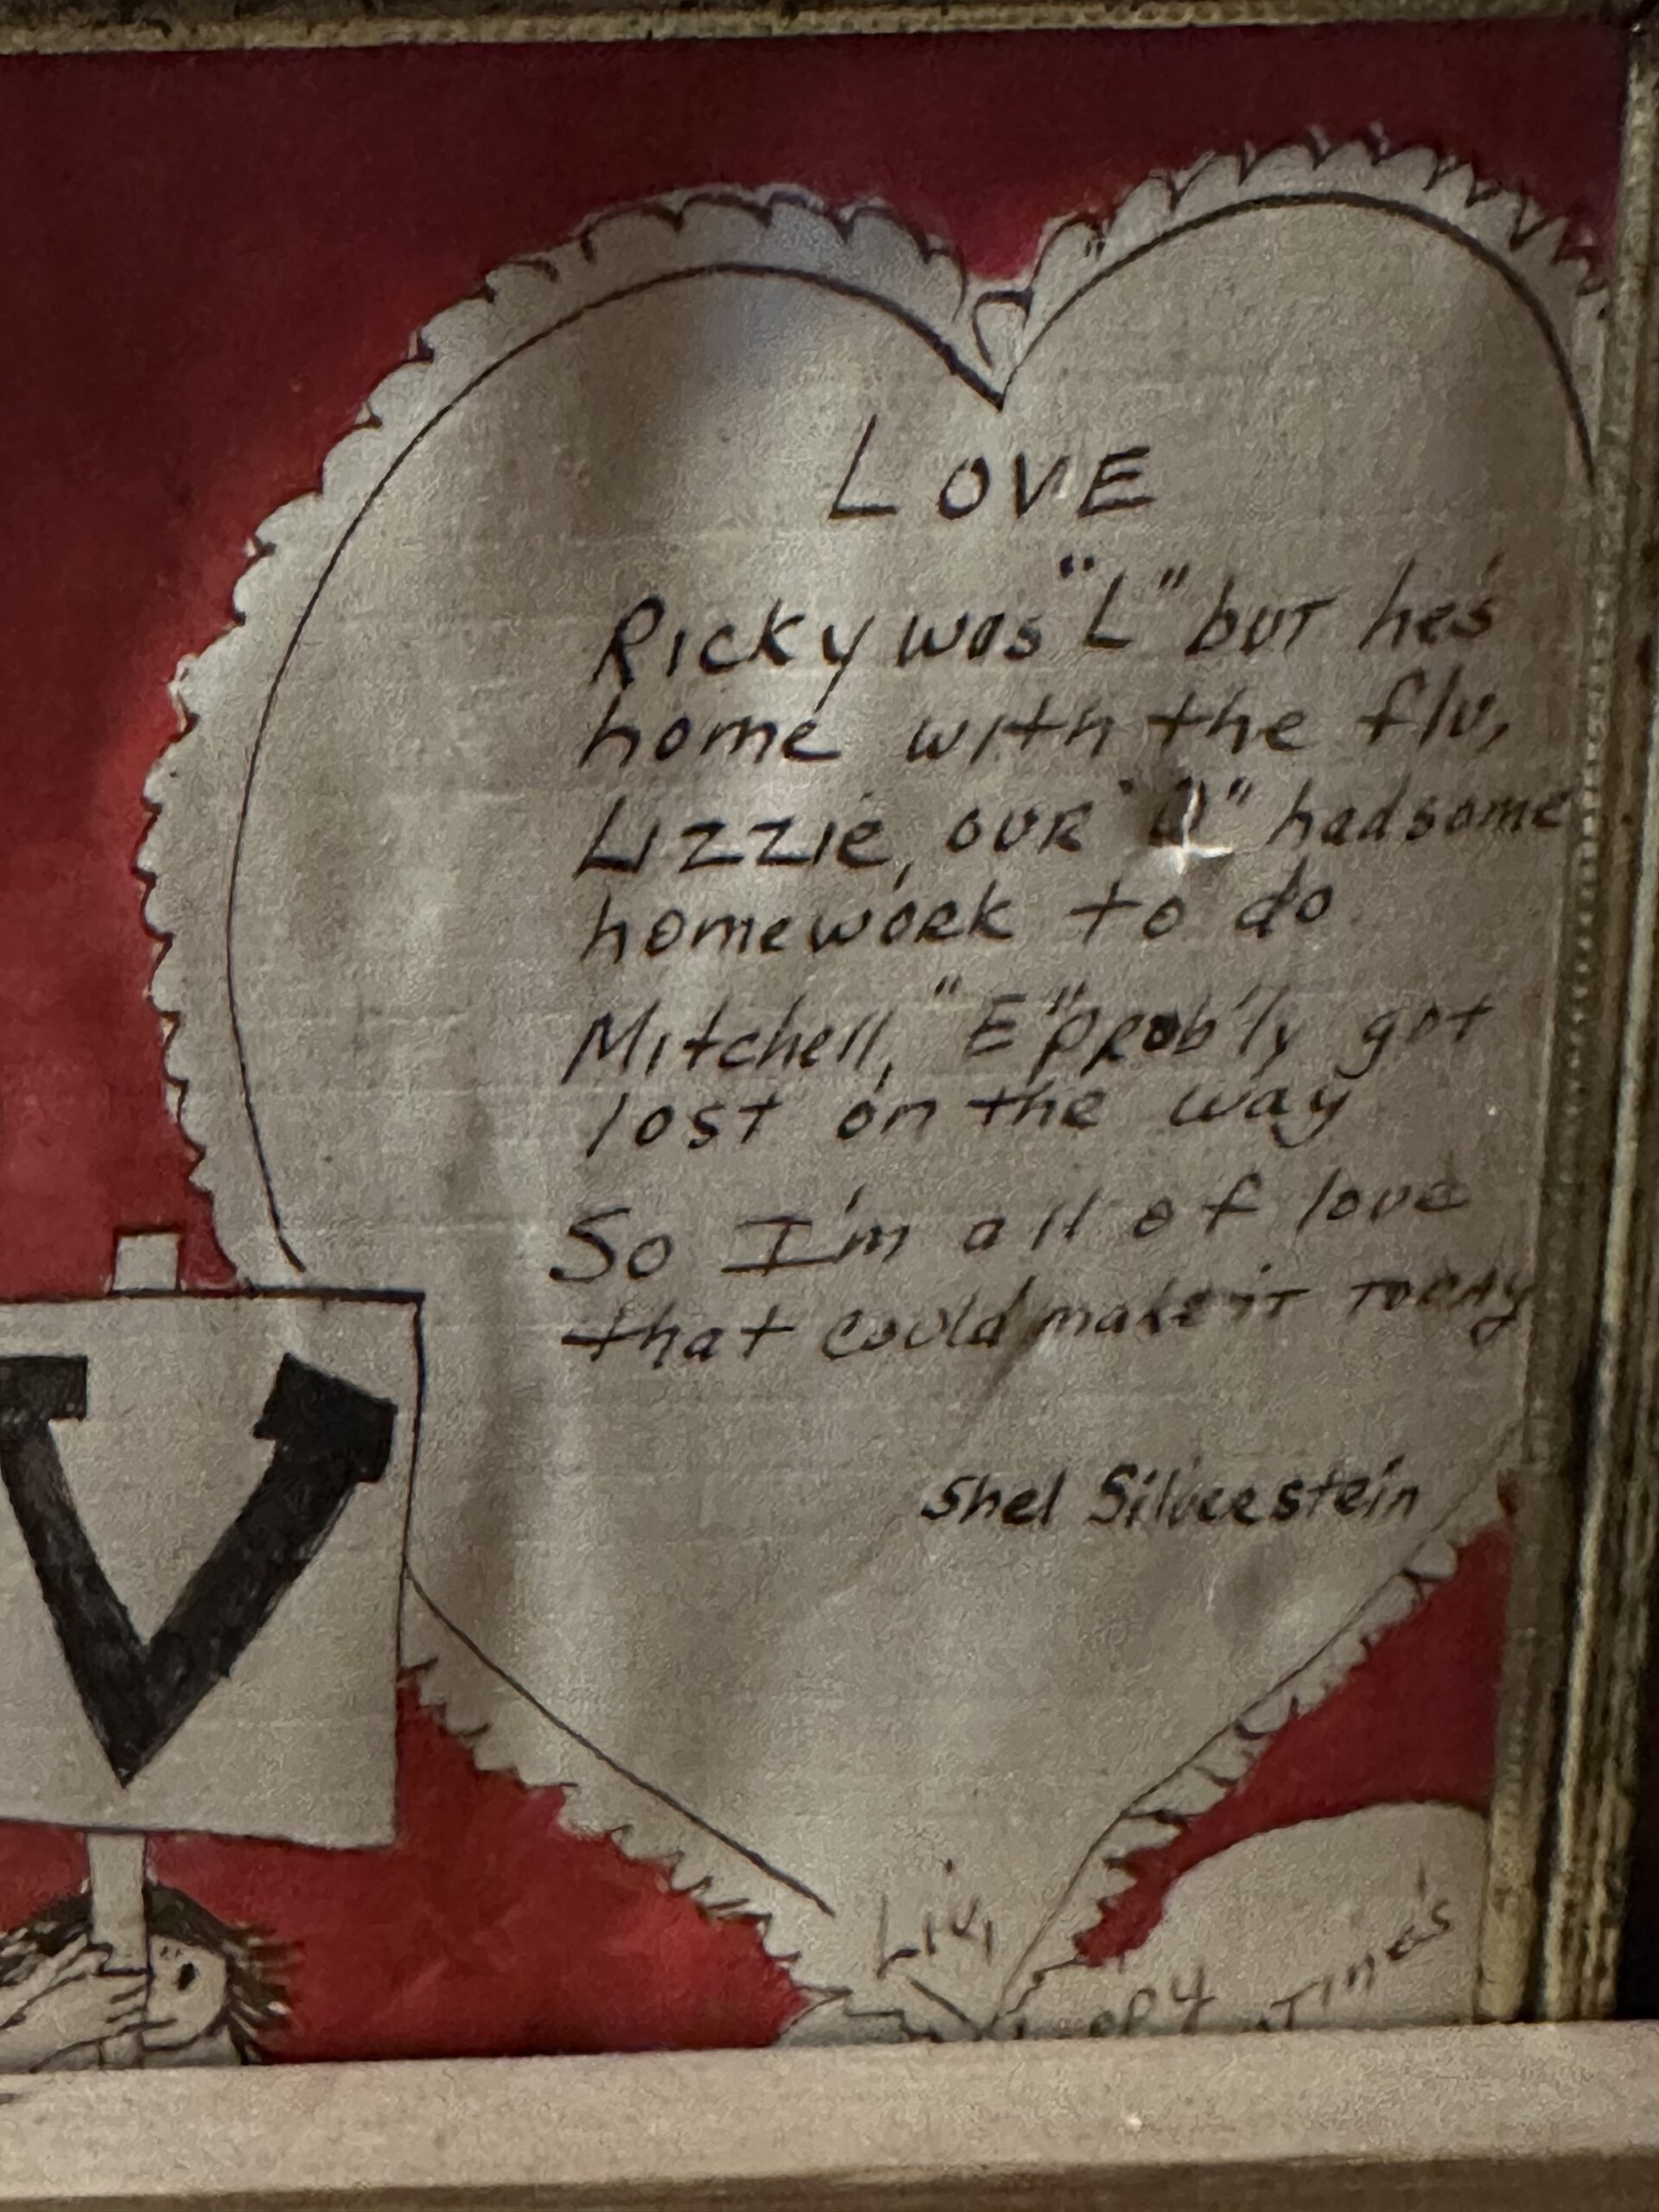 LOVE
Ricky was "L" but he's
home with the flu,
Lizzie, our "O" had some
homework to do.
Mitchell, "E" prob'ly got
lost on the way
So I'm all of love
that could make it TODAY
Shel Silverstein
V
Livi